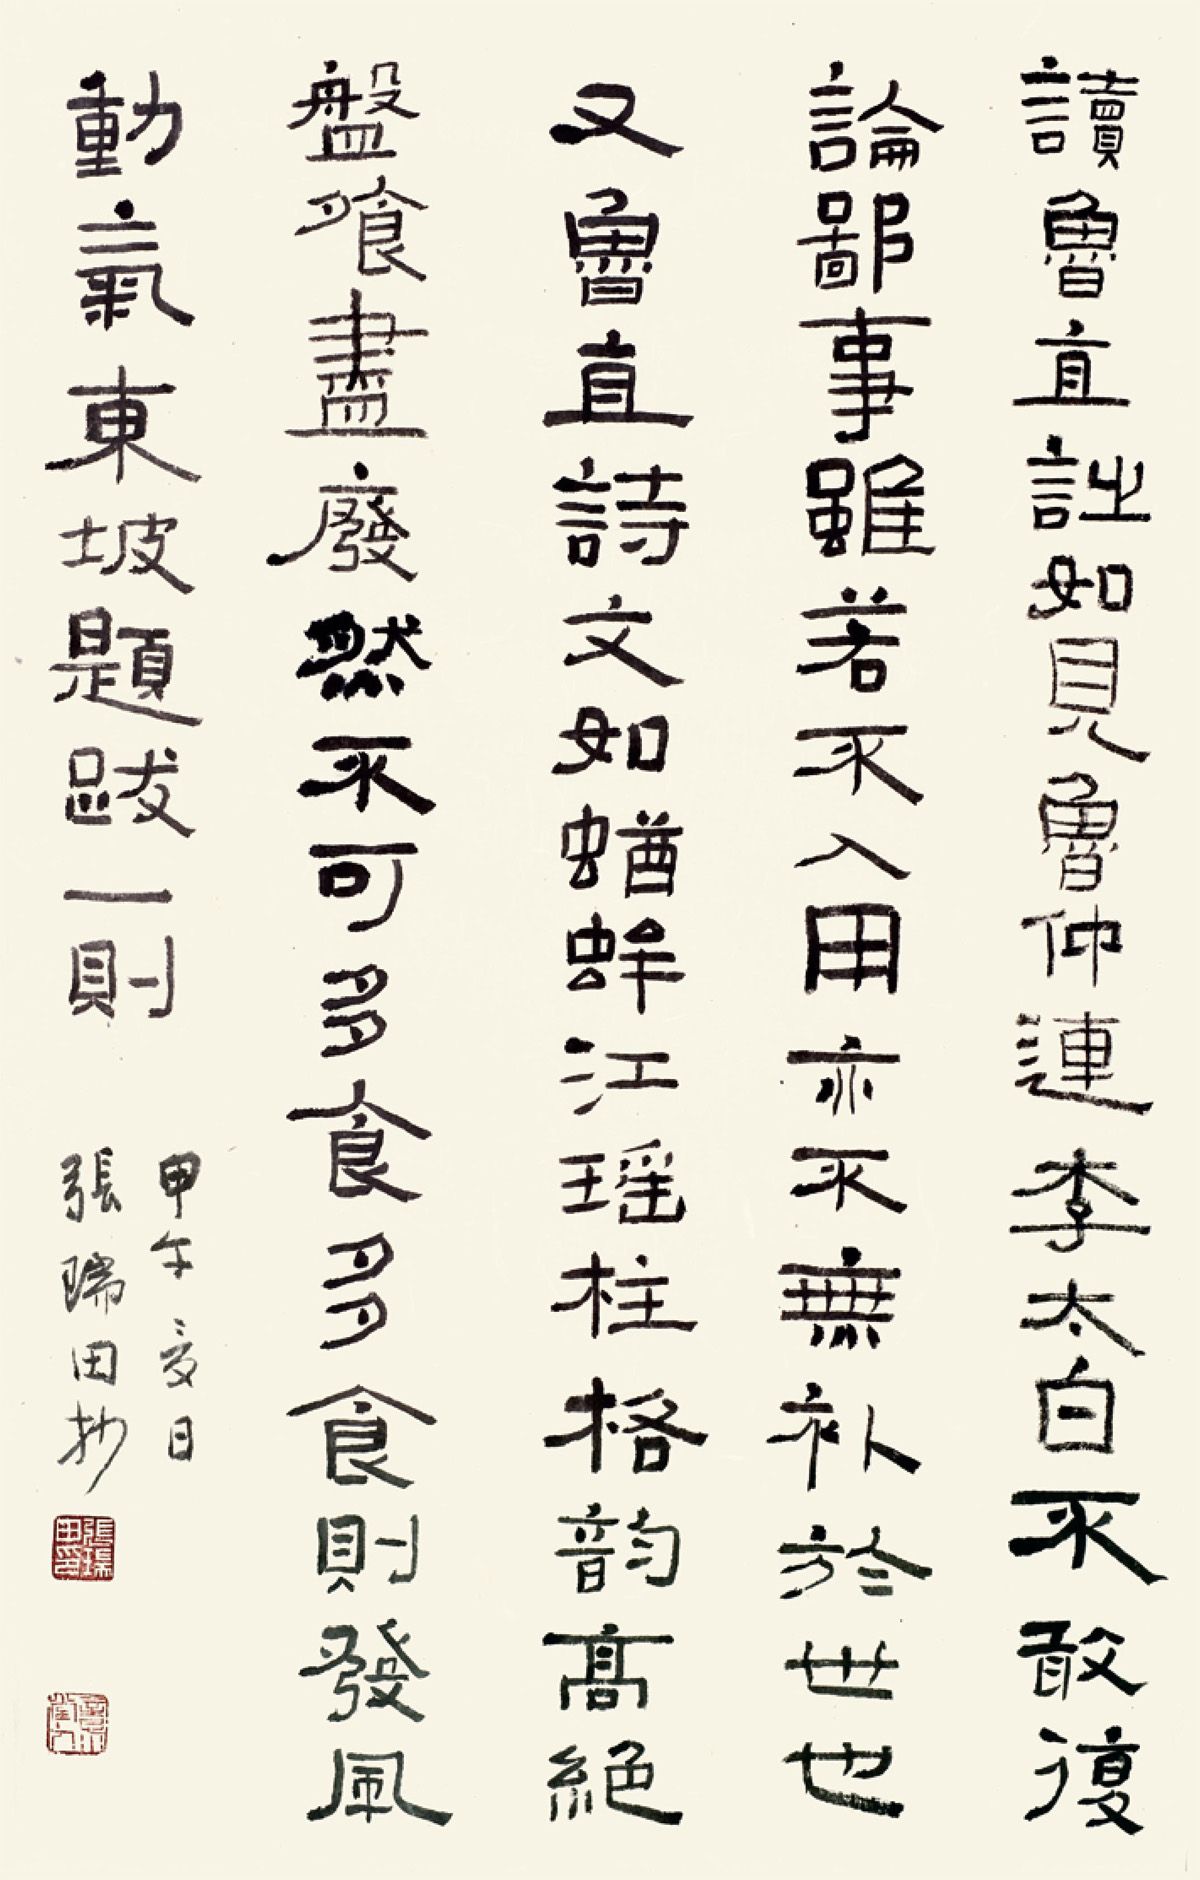 讀魯直詿如見魯仲連李太白不敢復
論鄙事雖若不入用亦不無補於世也
又魯直詩文如蝤蛑江瑶柱格韵高絶
盤飧盡廢然不可多食多食則發風
動氣東坡題跋一則
甲午夏日
張瑞田抄
張瑞田印